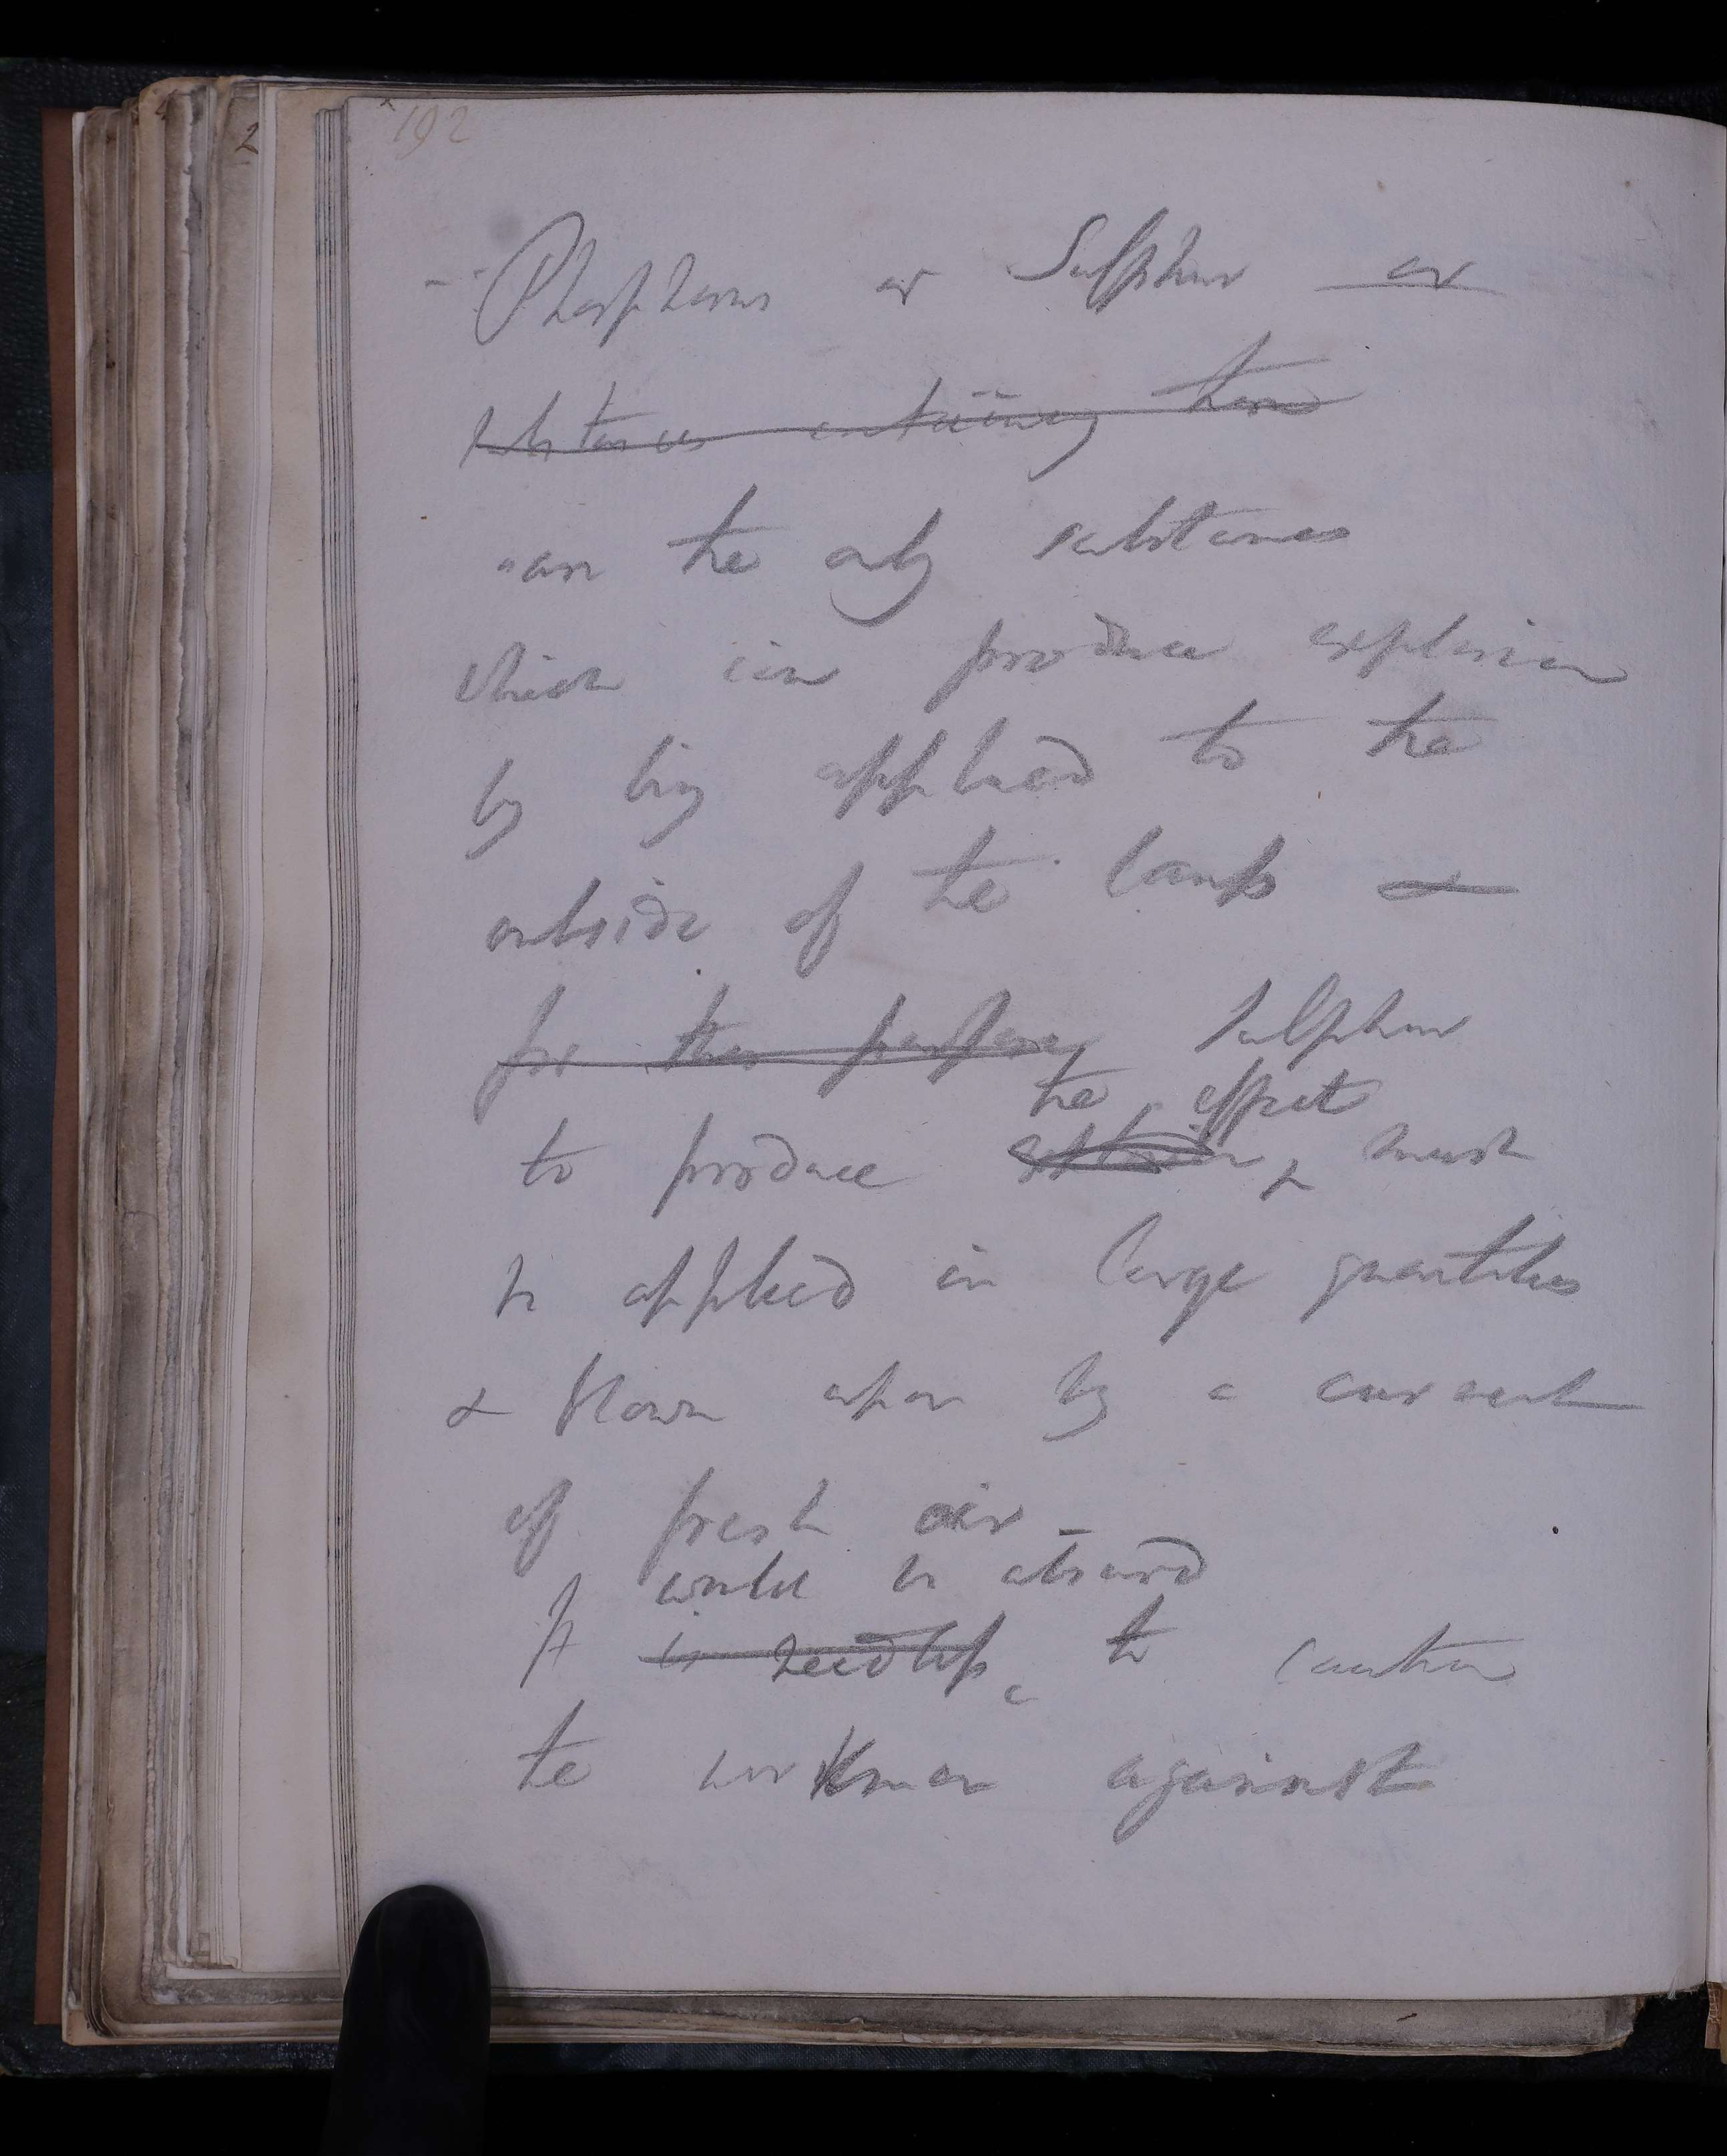 192
- Phosphorus or Sulphur or
substances containing them
are the only substances
which can produce explosion
by being applied to the
outside of the lamp &
for this purpose, Sulphur
the effect
to produce explosion ^ must
be applied in large quantities
& blown upon by a current
of fresh air -
would be absurd
It is needless ^ to caution
the workman against